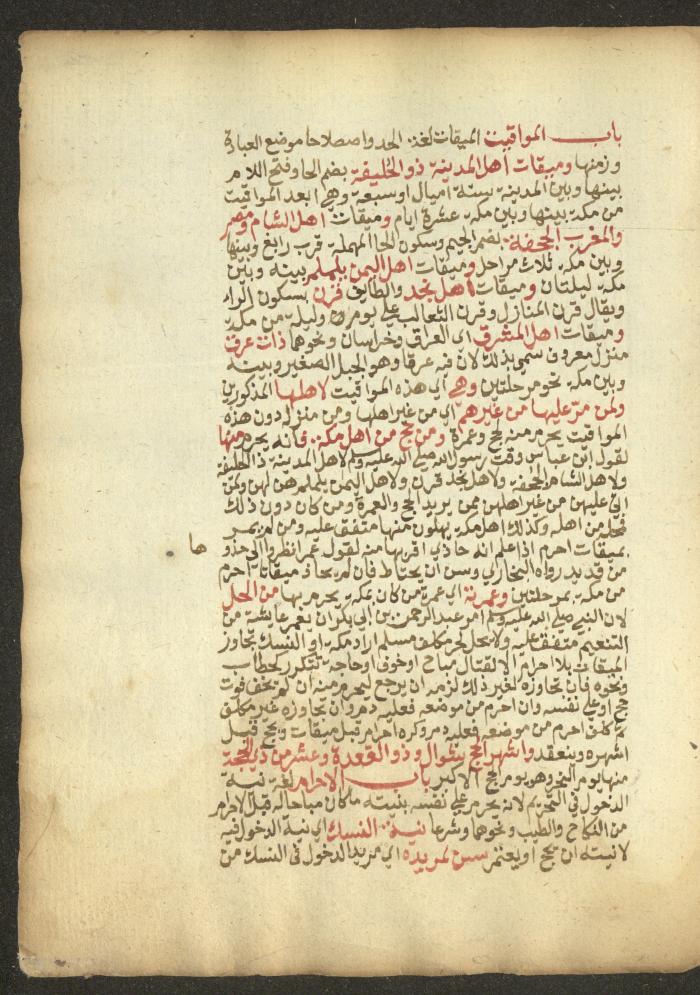 باب المواقيت الميقات لغة الحد واصطلاحا موضع العبادة
وزمنها وميقات اهل المدينة ذو الحليفة بضم الحا وفتح اللام
بينها وبين المدينة ستة اميال او سبعة وهي ابعد المواقيت
من مكة بينها وبين مكة عشرة ايام وميقات اهل الشام ومصر
والمغرب الجحفة بضم الجيم وسكون الحا المهملة قرب رابغ وبينها
وبين مكة ثلاث مراحل وميقات اهل اليمن يلملم بينه وبين
مكة ليلتان وميقات اهل نجد والطايف قرن بسكون الراء
ويقال قرن المنازل وقرن الثعالب على يوم وليلة من مكة
وميقات اهل المشرق اي العراق وخراسان ونحوهما ذات عرق
منزل معروف سمي بذلك لان فيه عرقا وهو الجبل الصغير وبينه
وبين مكة نحو مرحلتين وهي اي هذه المواقيت لاهلها المذكورين
ولمن مر عليها من غيرهم اي من غير اهلها ومن منزله دون هذه
المواقيت يحرم منه لحج وعمرة ومن حج من اهل مكة فانه يحرم منها
لقول ابن عباس وقت رسول الله صلى الله عليه وسلم لاهل المدينة ذا الحليفة
ولاهل الشام الجحفة ولاهل نجد قرن ولاهل اليمن يلملم هن لهن ولمن
اتى عليهن من غير اهلهن ممن يريد الحج والعمرة ومن كان دون ذلك
فمهله من اهله وكذلك اهل مكة يهلون منها متفق عليه ومن لم يمر
بميقات احرم اذا علم انه حاذى اقربها منه لقول عمر انظروا الى حذو
ها
من قديد رواه البخاري وسن ان يحتاط فان لم يحاذ ميقاتا احرم
من مكة بمرحلتين وعمرته اي عمرة من كان بمكة يحرم بها من الحل
لان النبي صلى الله عليه وسلم امر عبد الرحمن بن ابي بكر ان يعمر عايشة من
التنعيم متفق عليه ولا يحل لحر مكلف مسلم اراد مكة او النسك تجاوز
الميقات بلا احرام الا لقتال مباح او خوف او حاجة تتكرر كحطاب
ونحوه فان تجاوزه لغير ذلك لزمه ان يرجع ليحرم منه ان لم يخف فوت
حج او على نفسه وان احرم من موضعه فعليه دم وان تجاوزه غير مكلف
ثم كلف احرم من موضعه فعليه دم وكره احرام قبل ميقات وبحج قبل
اشهره وينعقد واشهر الحج شوال وذو القعدة وعشر من ذي الحجة
منها يوم النحر وهو يوم الحج الاكبر باب الاحرام لغة نية
الدخول في التحريم لانه يحرم على نفسه بنيته ما كان مباحا له قبل الاحرام
من النكاح والطيب ونحوهما وشرعا نية النسك اي نية الدخول فيه
لا نيته ان يحج او يعتمر سن لمريده اي مريد الدخول في النسك من